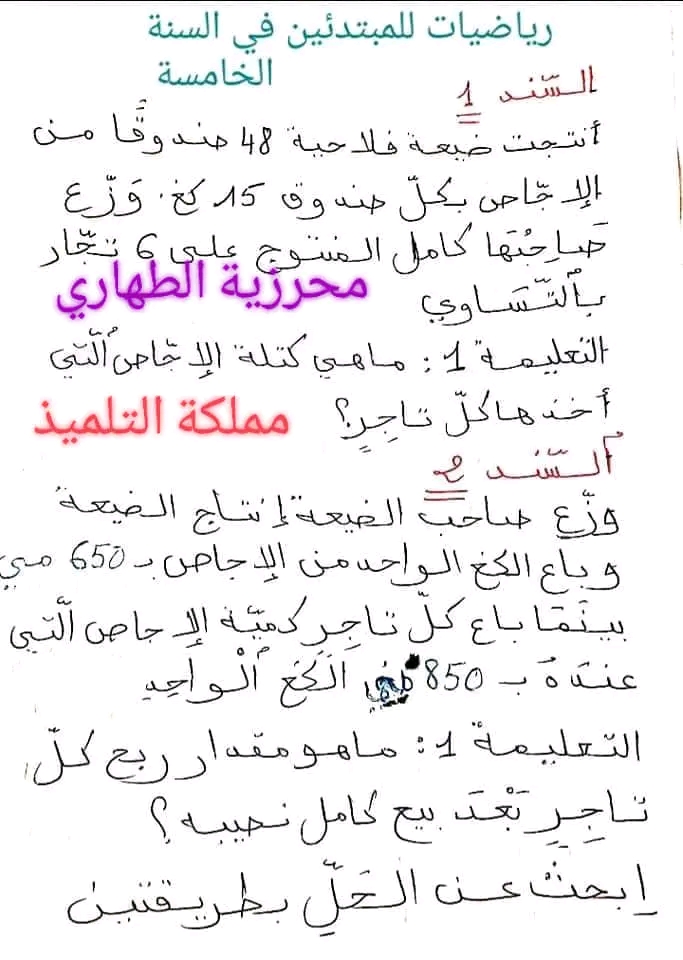 رياضيات للمبتدئين في السنة
الخامسة
السّند 1
أنتجت ضيعة فلاحية 48 صندوقًا من
الإجّاص بكلّ صندوق 15 كغ. وَزّع
صَاحِبُهَا كامل المنتوج على 6 تجّار
محرزية الطهاري
بالتّسَاوي
التعليمة 1: ماهي كتلة الإجّاص الّتي
أخذهاكلّ تاجِرٍ؟
مملكة التلميذ
السّند 2
وزّع صاحب الضيعة إنتاج الضيعة
وباع الكغ الواحد من الإجاص بـ 650 مي
بينَمَا باع كلّ تاجِرٍ كميّة الإجاص الّتي
عندَهُ بـ 850 الكَغ الْواحِدِ
التعليمة 1: ماهو مقدار ربح كلّ
تاجِرٍ بَعْدَ بيع كامل نصيبه؟
اِبحثْ عن الحَلِّ بطريقتين